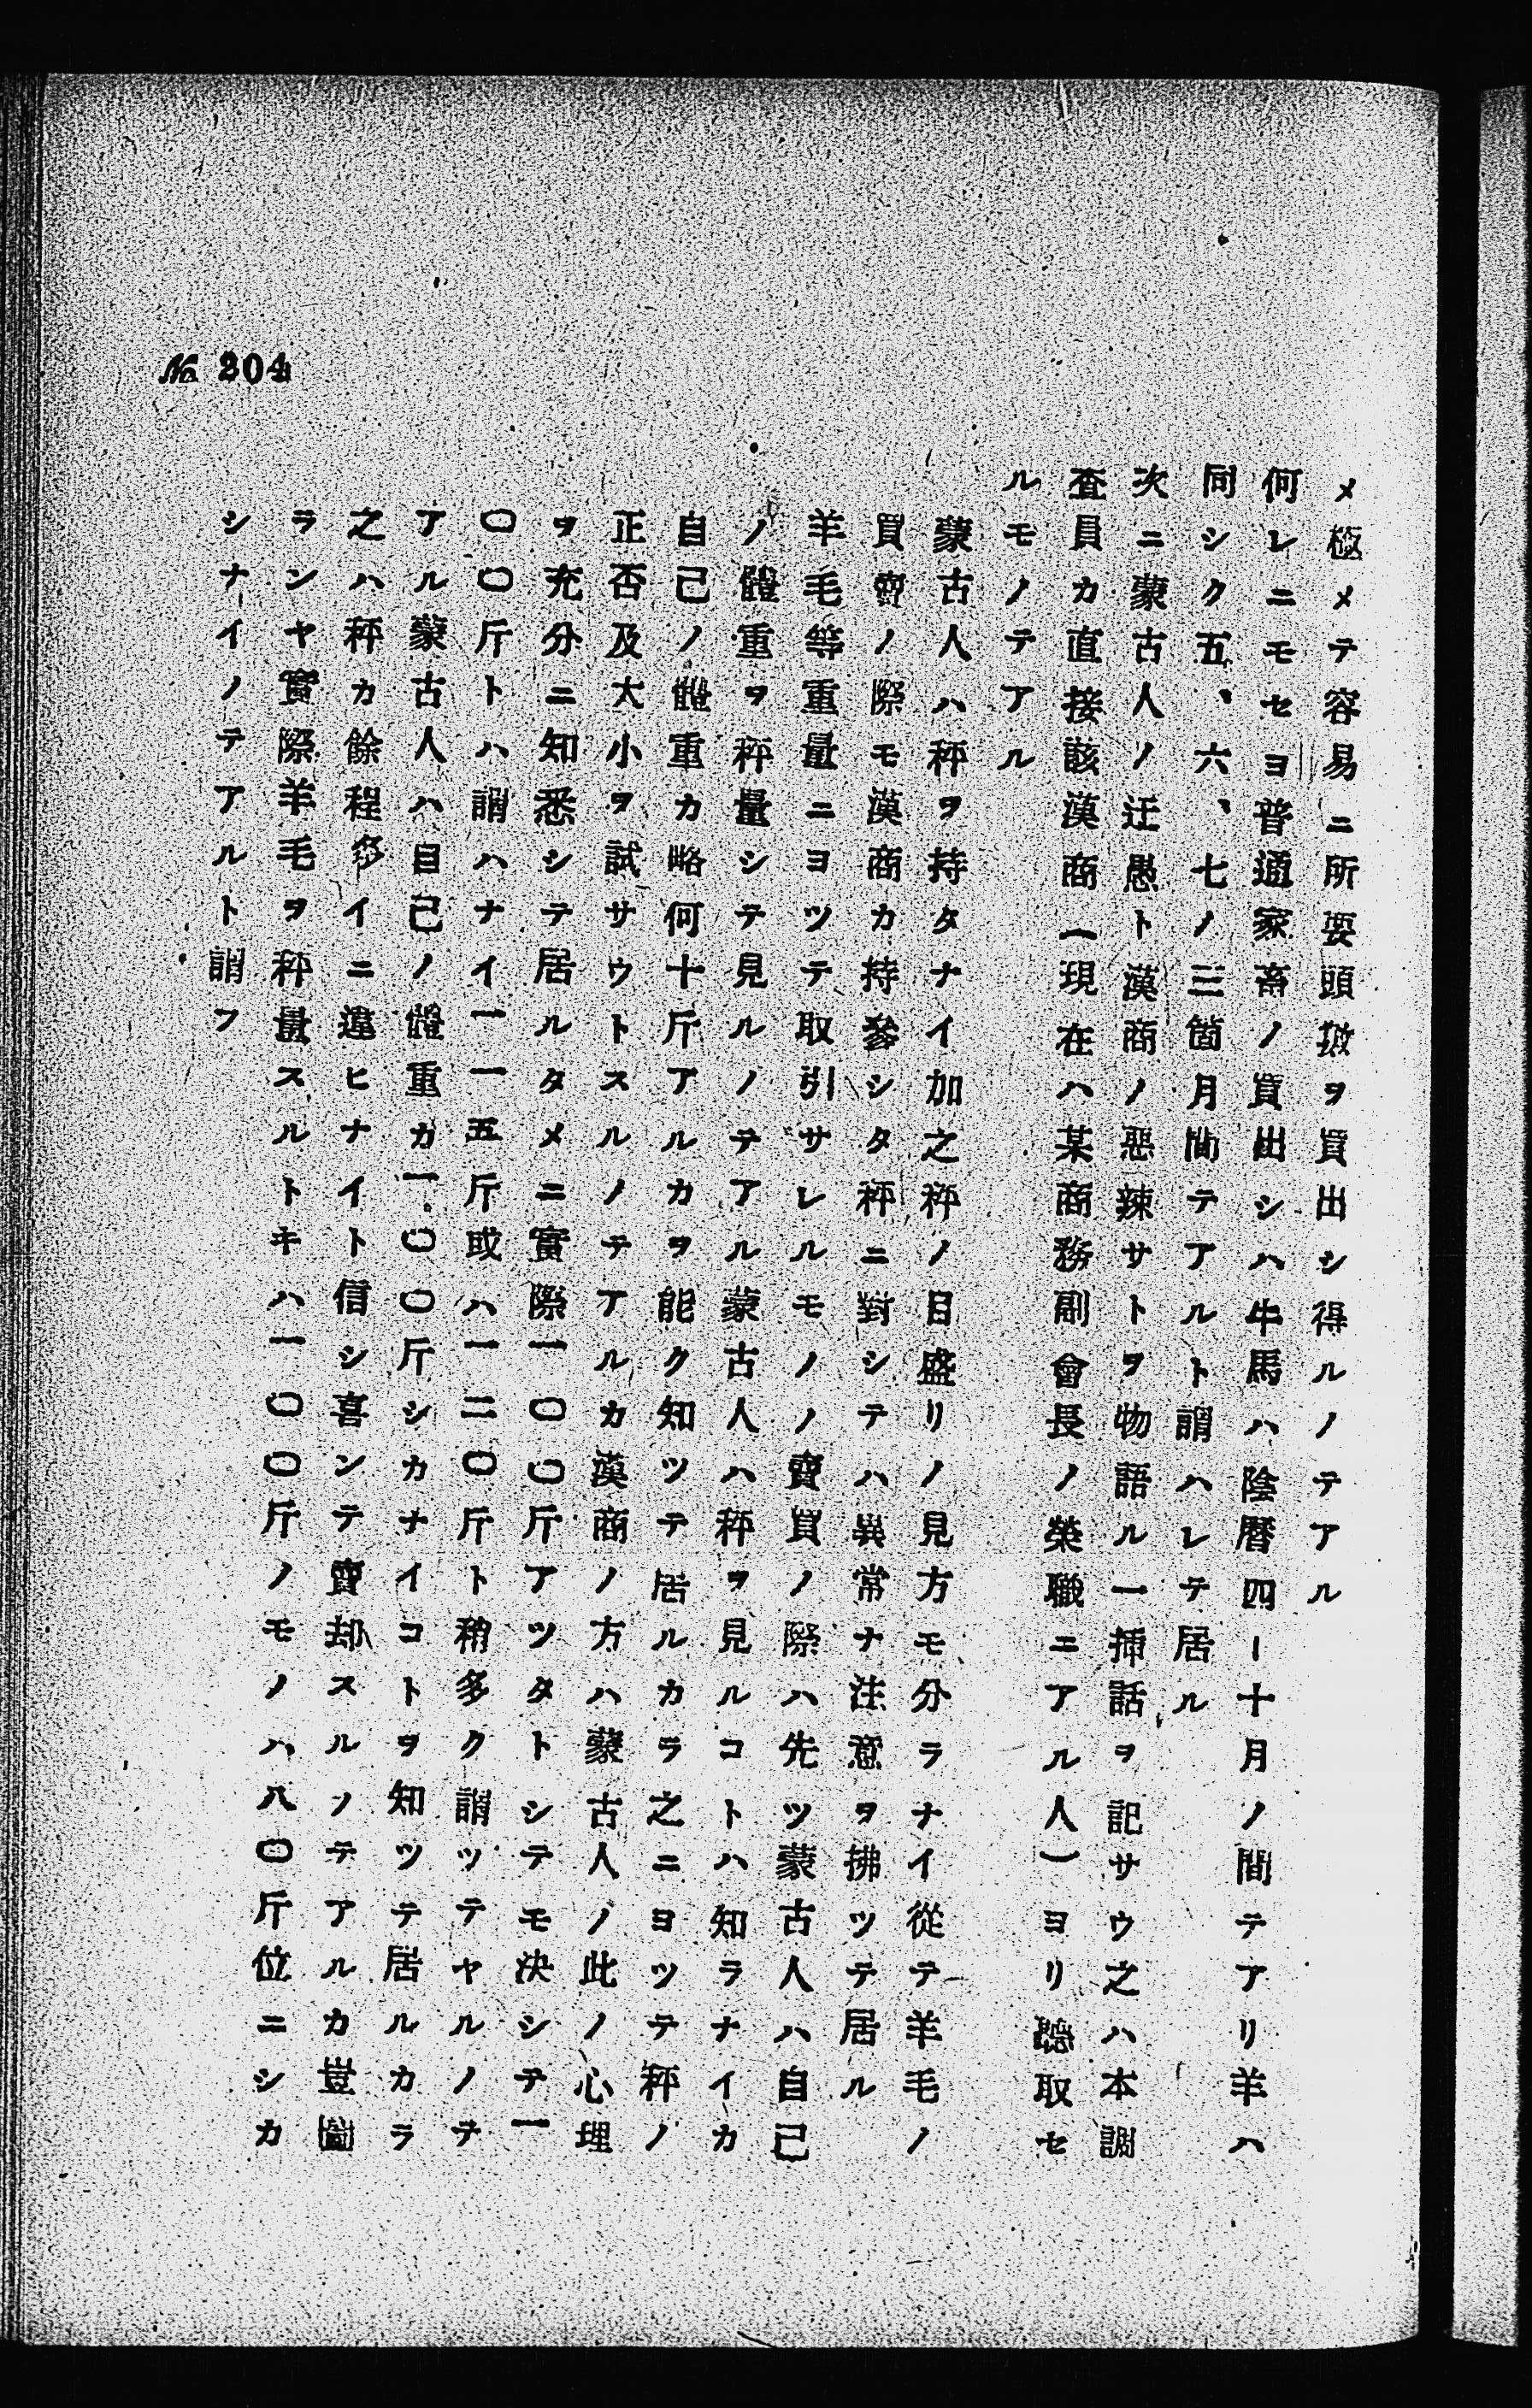 メ極メテ容易ニ所要頭數ヲ買出シ得ルノテアル
何レニモセヨ普通家畜ノ買出シハ牛馬ハ陰曆四ー十月ノ間テアリ羊ハ
同シク五、六、七ノ三箇月間テアルト謂ハレテ居ル
次ニ蒙古人ノ迂愚ト漢商ノ惡辣サトヲ物語ル一揷話ヲ記サウ之ハ本調
査員カ直接該漢商（現在ハ某商務副會長ノ榮職ニアル人）ヨリ聽取セ
ルモノテアル
蒙古人ハ秤ヲ持タナイ加之秤ノ目盛リノ見方モ分ラナイ從テ羊毛ノ
買賣ノ際モ漢商カ持參シタ秤ニ對シテハ異常ナ注意ヲ拂ツテ居ル
羊毛等重量ニヨツテ取引サレルモノノ賣買ノ際ハ先ツ蒙古人ハ自己
ノ體重ヲ秤量シテ見ルノテアル蒙古人ハ秤ヲ見ルコトハ知ラナイカ
自己ノ體重カ略何十斤アルカヲ能ク知ツテ居ルカラ之ニヨツテ秤ノ
正否及大小ヲ試サウトスルノテアルカ漢商ノ方ハ蒙古人ノ此ノ心理
ヲ充分ニ知悉シテ居ルタメニ實際一〇〇斤アツタトシテモ決シテ一
〇〇斤トハ謂ハナイ一一五斤或ハ一二〇斤ト稍多ク謂ツテヤルノテ
アル蒙古人ハ自己ノ體重カ一〇〇斤シカナイコトヲ知ツテ居ルカラ
之ハ秤カ餘程多イニ違ヒナイト信シ喜ンテ賣却スルノテアルカ豈圖
ランヤ實際羊毛ヲ秤量スルトキハ一〇〇斤ノモノハ八〇斤位ニシカ
シナイノテアルト謂フ
№ 204